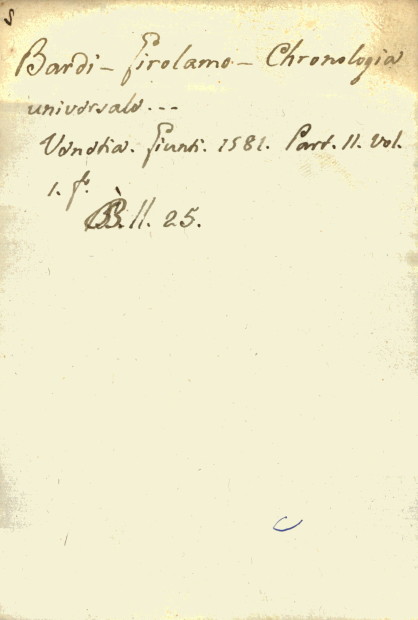 S
Bardi - Girolamo - Chronologia
universale ---
Venetia. Giunti. 1581. Part. II. Vol.
1. f.º
B. II. 25.